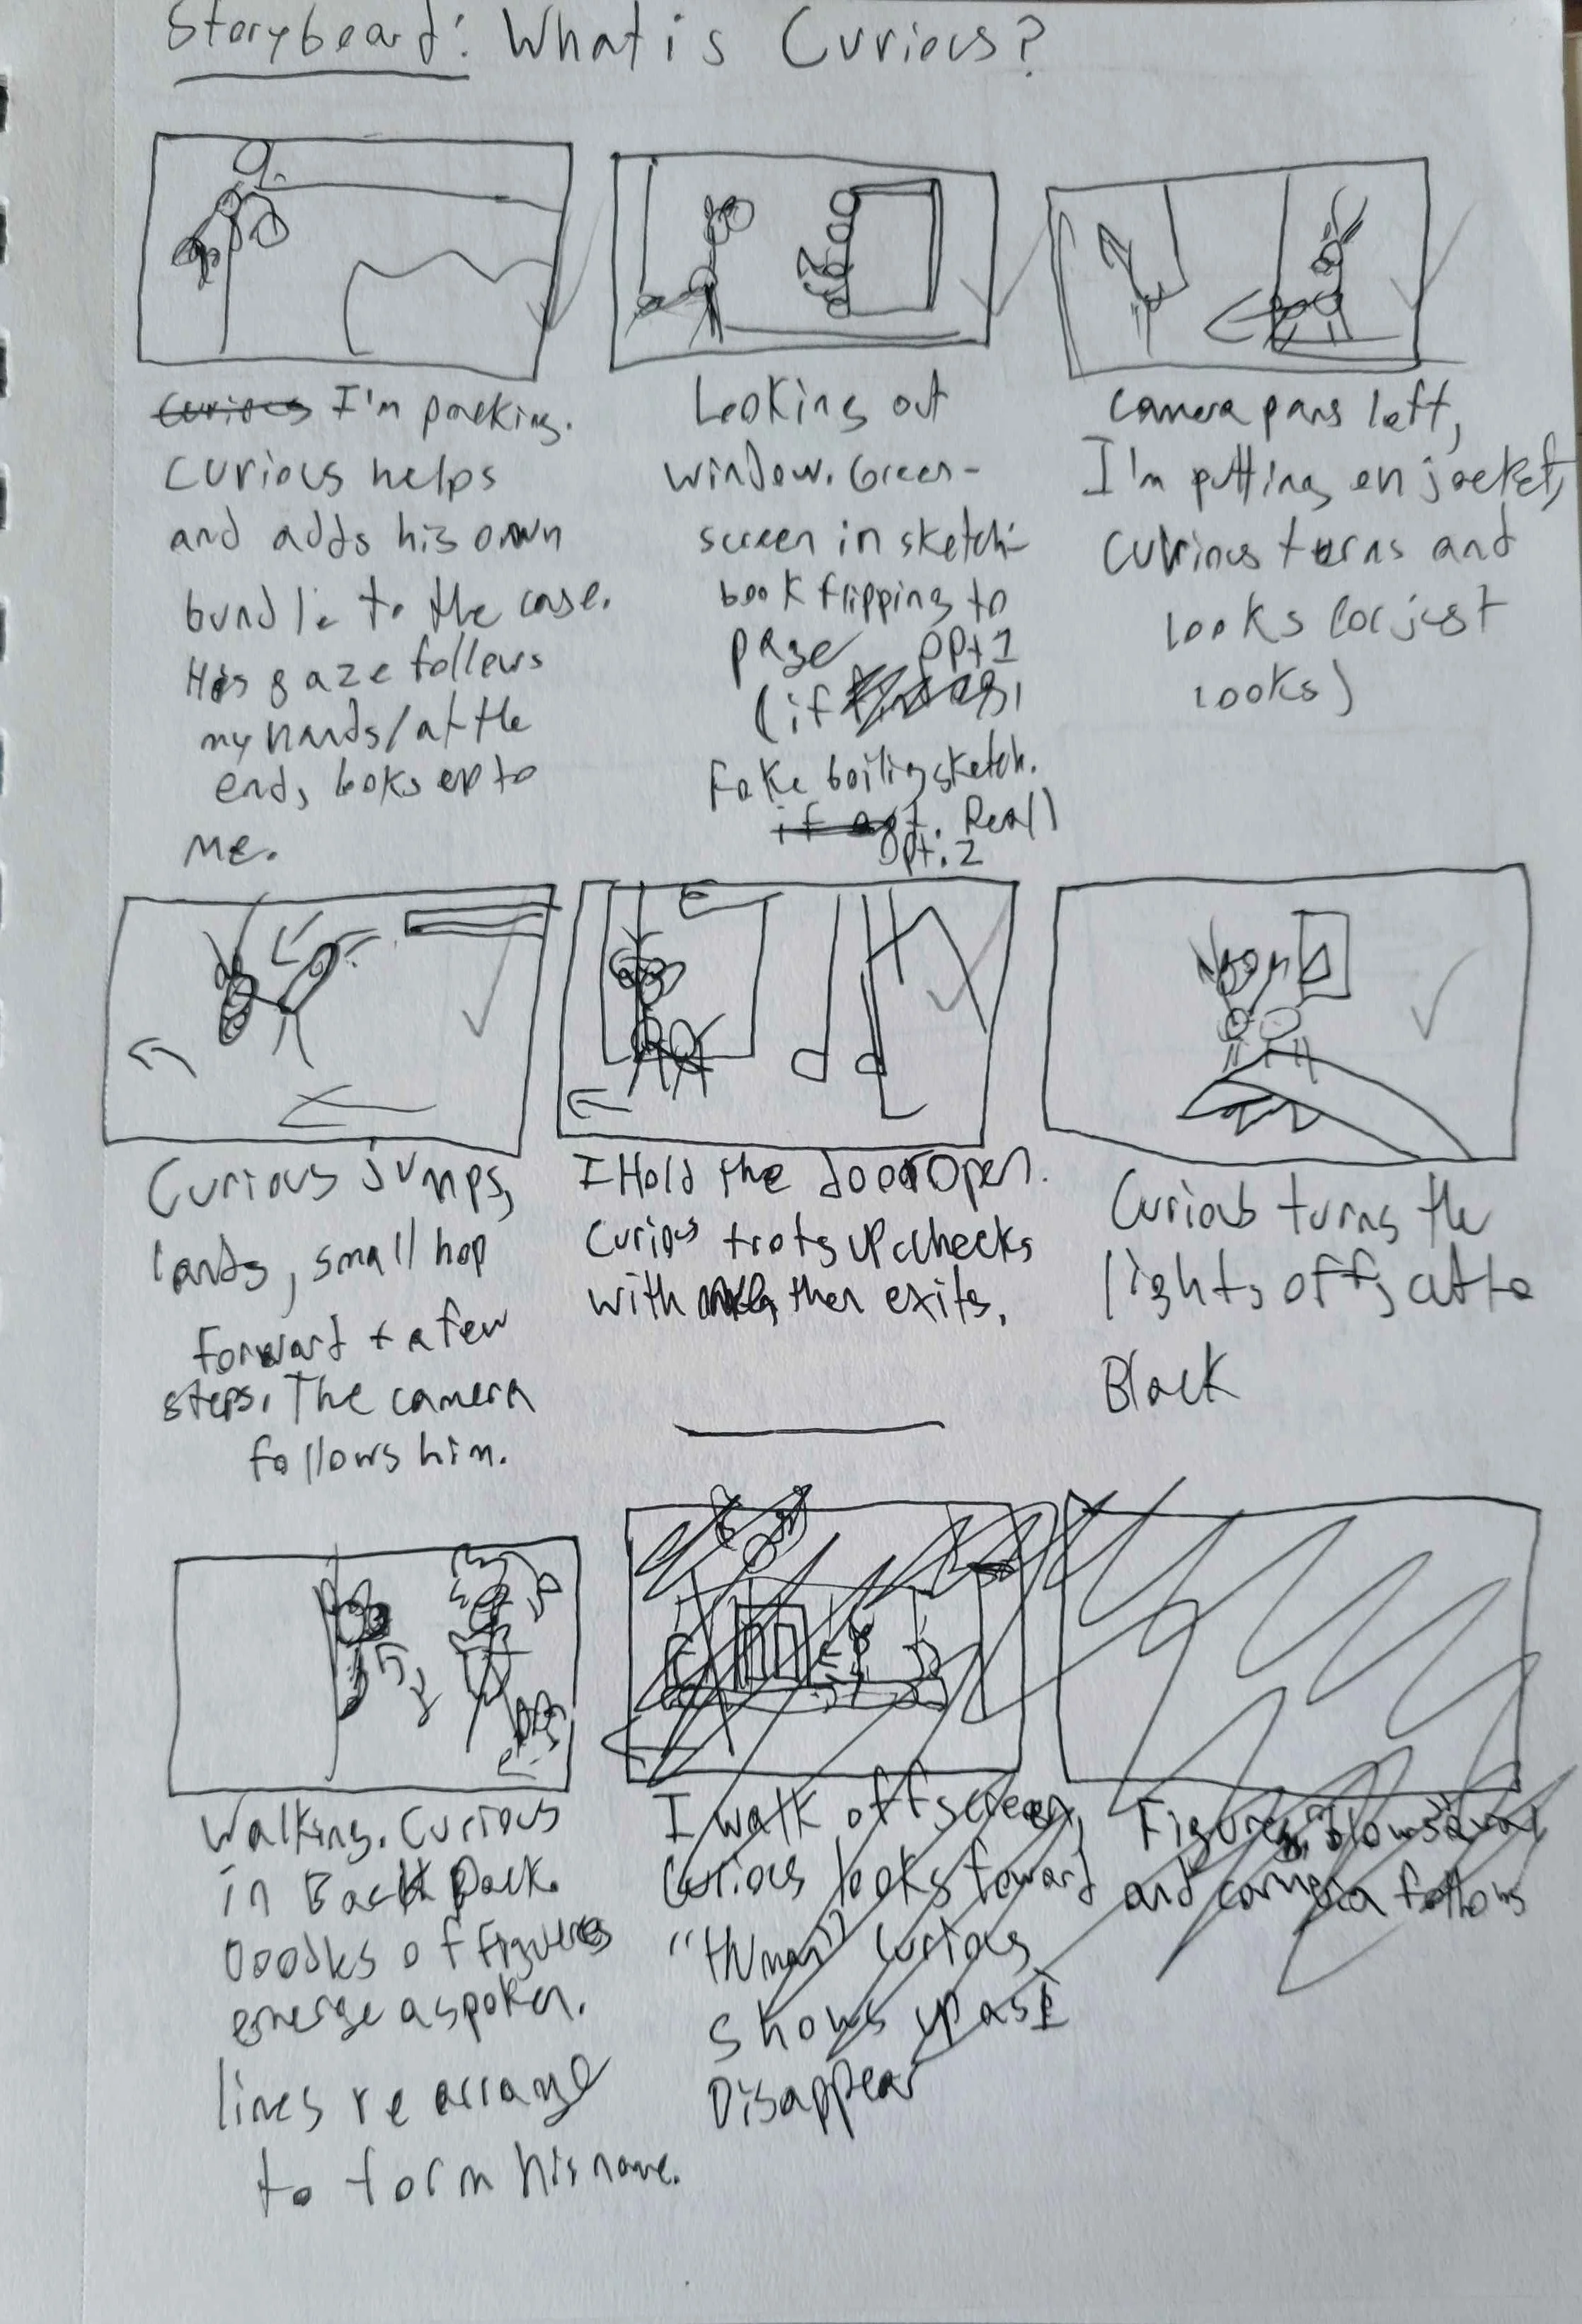 Storyboard: What is Curious?
Curious I'm packing.
Curious helps
and adds his own
bundle to the case.
His gaze follows
my hands/at the
end, looks up to
me.
Looking out
window. Green-
screen in sketch-
book flipping to
page Opt 1
(if
Fake boiling sketch.
if not. Real)
Opt. 2
Camera pans left,
I'm putting on jacket,
Curious turns and
looks (or just
looks)
Curious jumps,
lands, small hop
forward + a few
steps. The camera
follows him.
I Hold the door Open.
Curious trots up checks
with then exits.
Curious turns the
lights off, cut to
Black
Walking. Curious
in BackPack.
Doodles of figures
emerge as poken.
lines rearrange
to form his name.
I walk off screen,
Curious looks toward
"Human" Curious
shows up as I
Disappear
Figure blows away
and camera follows